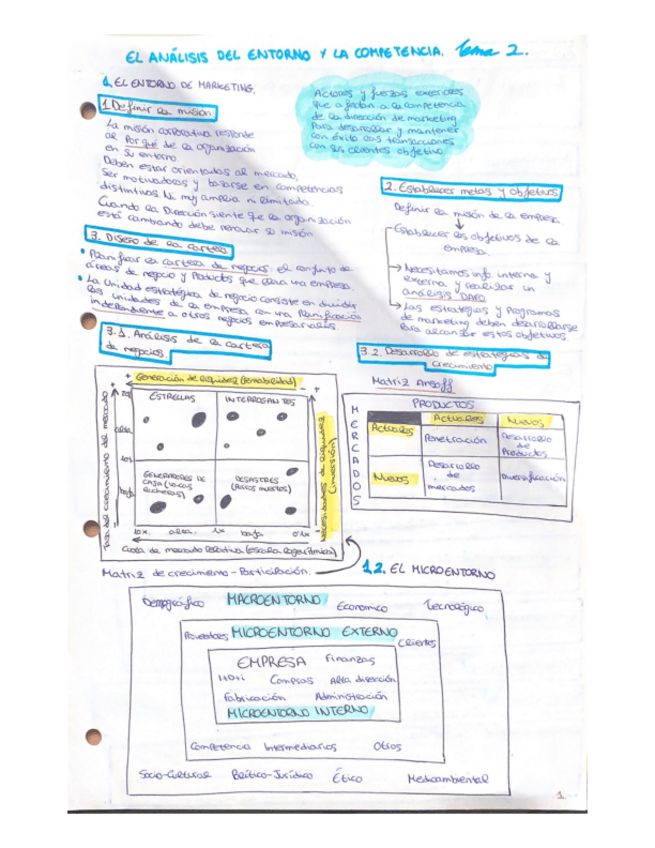 EL ANÁLISIS DEL ENTORNO Y LA COMPETENCIA. Tema 2.
1. EL ENTORNO DE MARKETING.
Actores y fuerzas exteriores
que afectan a la competencia
de la dirección de marketing
para desarrollar y mantener
con éxito las transacciones
con sus clientes objetivo.
1. Definir la misión
La misión corporativa responde
al Por qué de la organización
en su entorno.
Deben estar orientadas al mercado,
ser motivadoras y basarse en competencias
distintivas. Ni muy amplia ni limitada.
Cuando la Dirección siente que la organización
está cambiando debe renovar su misión.
2. Establecer metas y objetivos
Definir la misión de la empresa.
Establecer los objetivos de la
empresa.
Necesitamos info interna y
externa y realizar un
análisis DAFO
Las estrategias y Programas
de marketing deben desarrollarse
para alcanzar estos objetivos.
3. Diseño de la cartera
• Planificar la cartera de negocios: el conjunto de
áreas de negocio y Productos que para una empresa.
• La Unidad estratégica de negocio consiste en dividir
las unidades de la empresa con una Planificación
independiente a otros negocios empresariales.
3.1. Análisis de la cartera
de negocios.
+ Generación de liquidez (rentabilidad) -
Tasa del crecimiento del mercado
+ 20%
alta
10%
baja
-
ESTRELLAS
INTERROGANTES
GENERADORES DE
CAJA (VACAS
LECHERAS)
DESASTRES
(PERROS MUERTOS)
Necesidades de liquidez
(inversión)
10x. alta. 1x baja 0'1x
Cuota de mercado Relativa (escala logarítmica)
Matriz de crecimiento - Participación.
3.2. Desarrollo de estrategias de
crecimiento
Matriz Ansoff
PRODUCTOS
MERCADOS
Actuales Nuevos
Actuales Penetración Desarrollo
de
Productos
Nuevos Desarrollo
de
mercados
Diversificación
1.2. EL MICROENTORNO
Demográfico MACROENTORNO Económico Tecnológico
Proveedores MICROENTORNO EXTERNO Clientes
EMPRESA Finanzas
I+D+i Compras Alta dirección
Fabricación Administración
MICROENTORNO INTERNO
Competencia Intermediarios Otros
Socio-Cultural Político-Jurídico Ético Medioambiental
1.